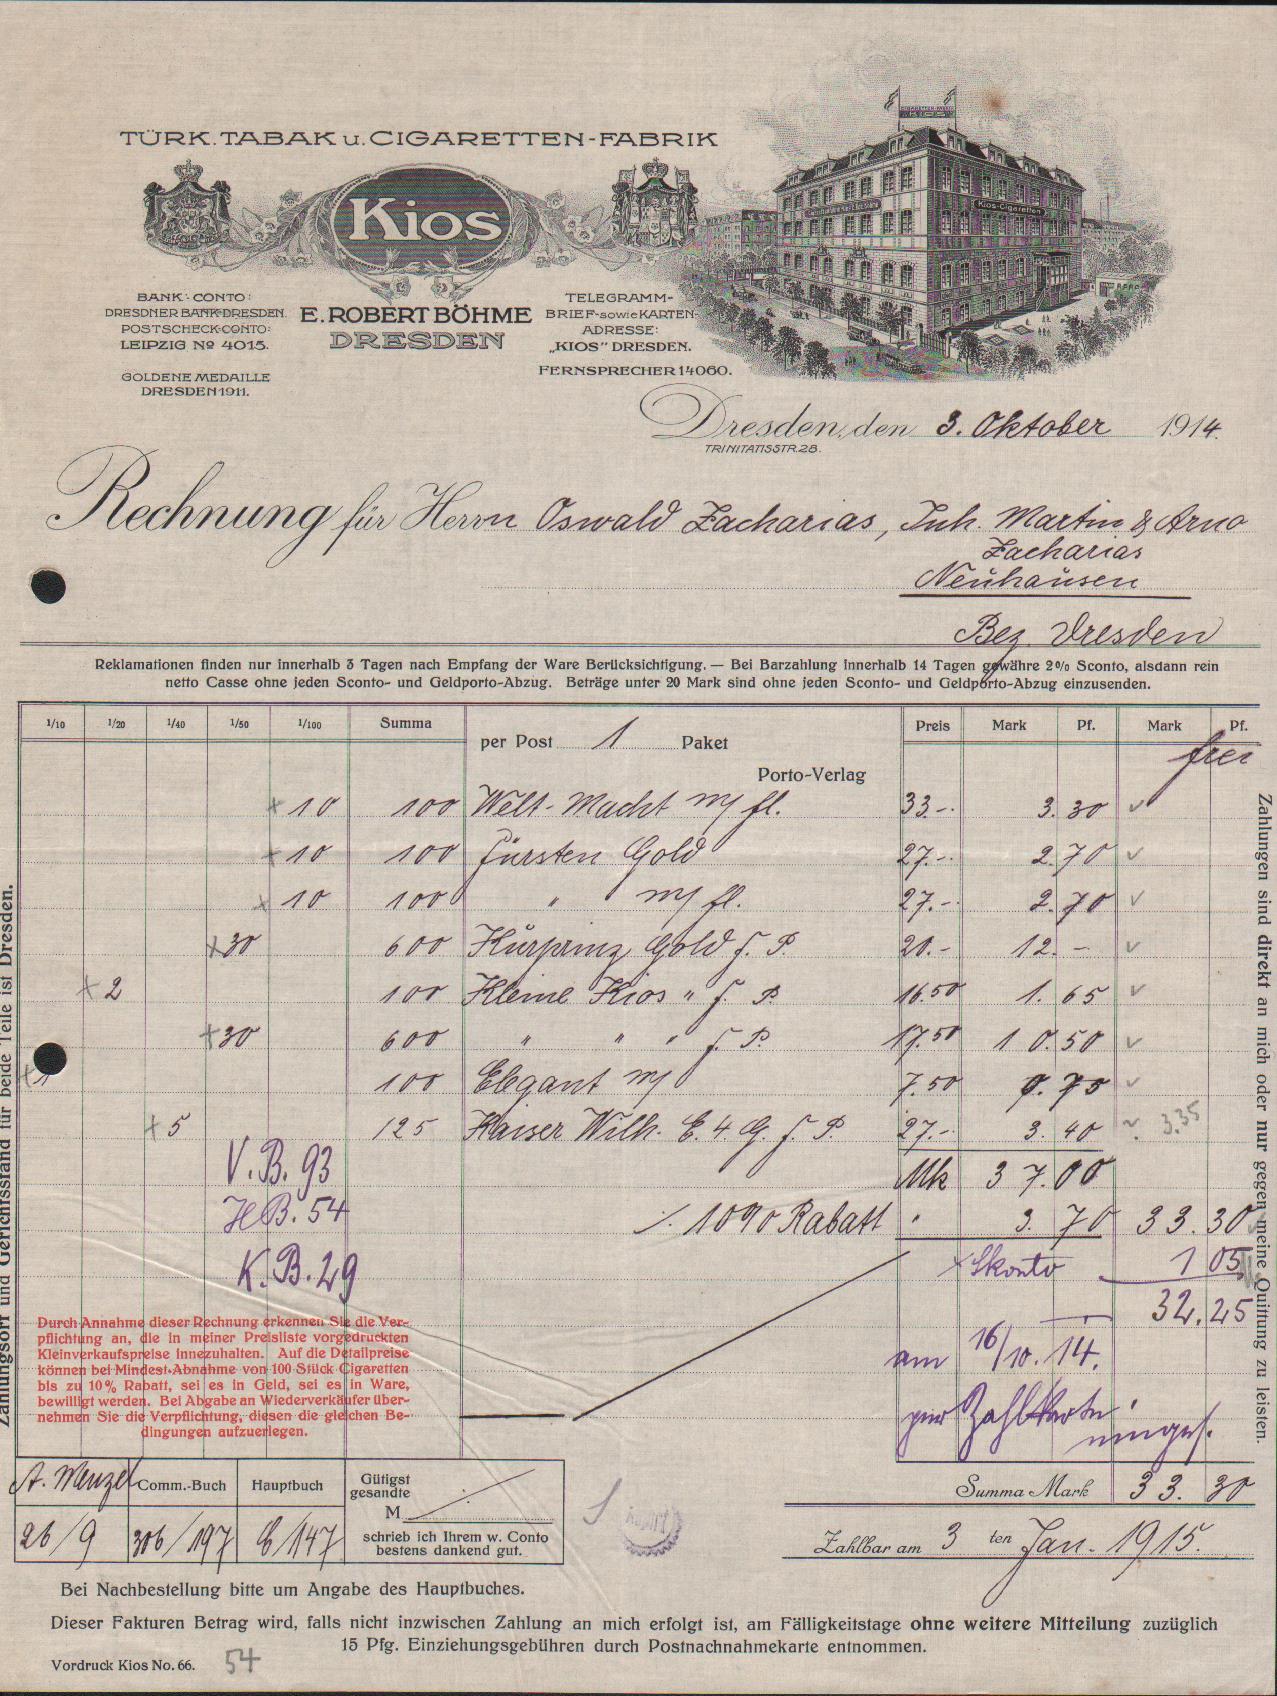 TÜRK. TABAK u. CIGARETTEN-FABRIK
CIGARETTEN-FABRIK
KIOS
Kios-Cigaretten
Kios
BANK-CONTO:
DRESDNER BANK-DRESDEN.
POSTSCHECK-CONTO:
LEIPZIG No 4015.
GOLDENE MEDAILLE
DRESDEN 1911.
E. ROBERT BÖHME
DRESDEN
TELEGRAMM-
BRIEF-sowie KARTEN-
ADRESSE:
„KIOS” DRESDEN.
FERNSPRECHER 14060.
Dresden, den 3. Oktober 1914.
TRINITATISSTR. 28.
Rechnung für Herrn Oswald Zacharias, Inh. Martin & Arno
Zacharias
Neuhausen
Bez. Dresden
Reklamationen finden nur innerhalb 3 Tagen nach Empfang der Ware Berücksichtigung. — Bei Barzahlung innerhalb 14 Tagen gewähre 2% Sconto, alsdann rein
netto Casse ohne jeden Sconto- und Geldporto-Abzug. Beträge unter 20 Mark sind ohne jeden Sconto- und Geldporto-Abzug einzusenden.
1/10 1/20 1/40 1/50 1/100 Summa per Post 1 Paket Preis Mark Pf. Mark Pf.
Porto-Verlag frei
10 100 Welt-Macht m/ fl. 33.- 3.30
10 100 Fürsten Gold 27.- 2.70
10 100 " m/ fl. 27.- 2.70
30 600 Kurprinz Gold f. P. 20.- 12.-
2 100 Kleine Kios " f. P. 16.50 1.65
30 600 " " " f. P. 17.50 10.50
1 100 Elegant m/ 7.50 0.75
5 125 Kaiser Wilh. E. 4 G. f. P. 27.- 3.40 3.35
V. B. 93 Mk 37.00
H B. 54 ·/. 10% Rabatt " 3.70 33.30
K. B. 29 Skonto 1 05
32.25
am 16/10. 14.
per Zahlkarte
Durch Annahme dieser Rechnung erkennen Sie die Ver-
pflichtung an, die in meiner Preisliste vorgedruckten
Kleinverkaufspreise innezuhalten. Auf die Detailpreise
können bei Mindest-Abnahme von 100 Stück Cigaretten
bis zu 10% Rabatt, sei es in Geld, sei es in Ware,
bewilligt werden. Bei Abgabe an Wiederverkäufer über-
nehmen Sie die Verpflichtung, diesen die gleichen Be-
dingungen aufzuerlegen.
Zahlungsort und Gerichtsstand für beide Teile ist Dresden.
Zahlungen sind direkt an mich oder nur gegen meine Quittung zu leisten.
A. Menzel Comm.-Buch Hauptbuch
26/9 306/197 E/147
Gütigst
gesandte
M
schrieb ich Ihrem w. Conto
bestens dankend gut.
Summa Mark 33.30
Zahlbar am 3 ten Jan. 1915.
Bei Nachbestellung bitte um Angabe des Hauptbuches.
Dieser Fakturen Betrag wird, falls nicht inzwischen Zahlung an mich erfolgt ist, am Fälligkeitstage ohne weitere Mitteilung zuzüglich
15 Pfg. Einziehungsgebühren durch Postnachnahmekarte entnommen.
Vordruck Kios No. 66. 54